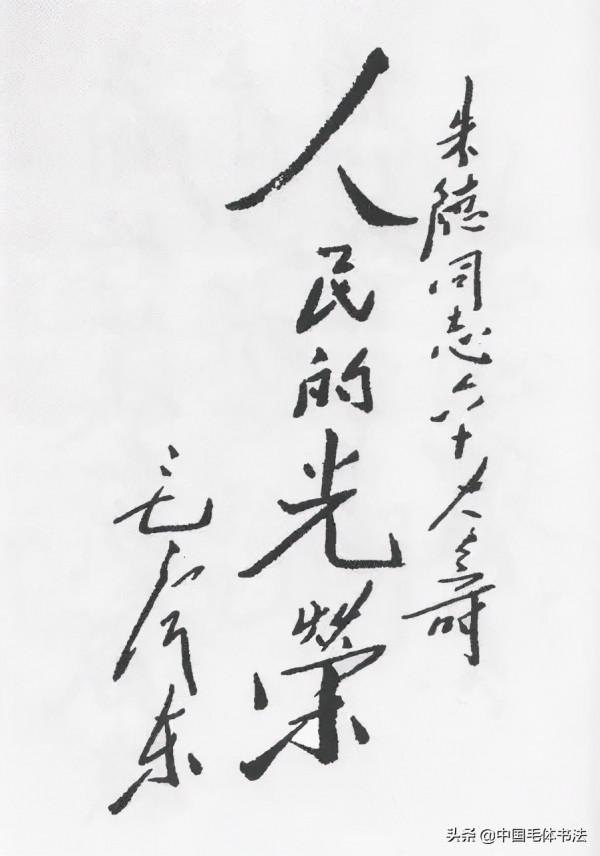 朱德同志六十大寿
人民的光荣
毛泽东
头条 @中国毛体书法